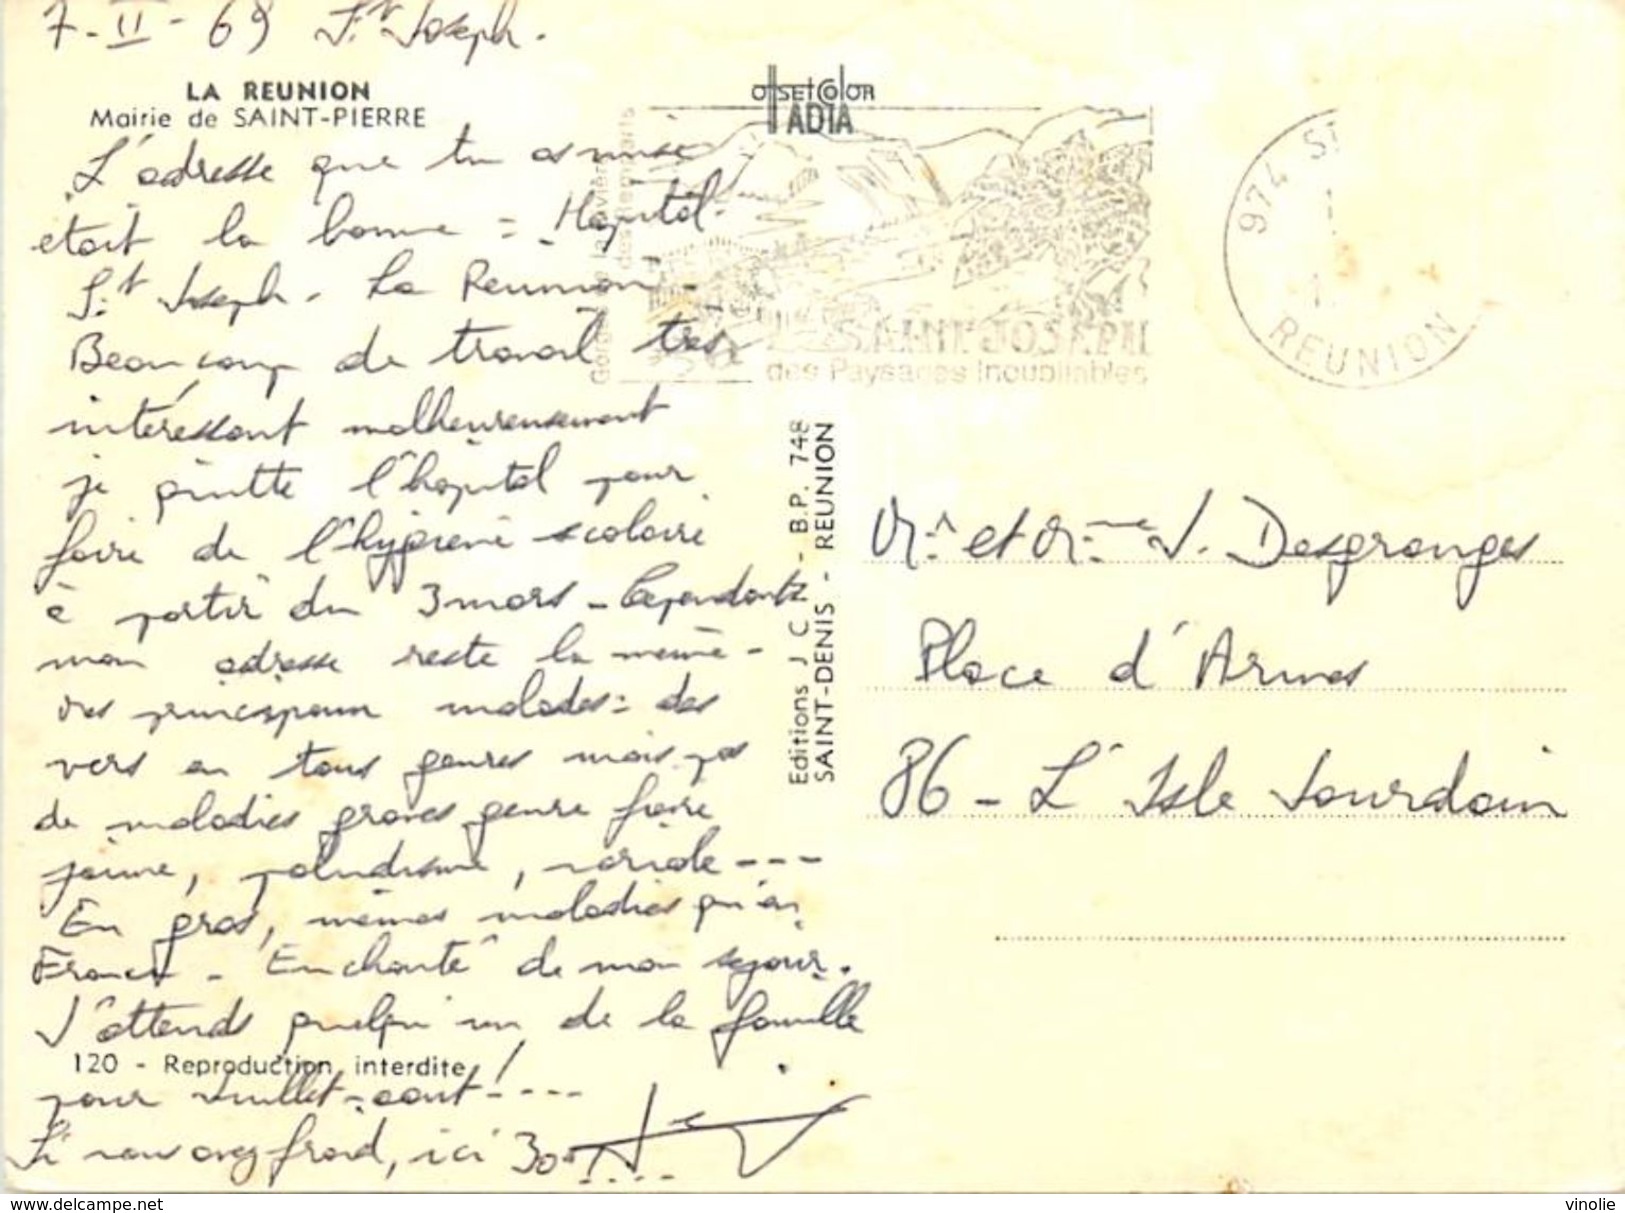 7-II-69 St Joseph.
LA REUNION
Mairie de SAINT-PIERRE
L'adresse que tu as mise
etait la bonne = Hopital.
St Joseph - La Reunion -
Beaucoup de travail très
intéressant malheureusement
je quitte l'hopital pour
faire de l'hygiene scolaire
à partir du 3 mars - Cependant
mon adresse reste la même -
des
vers en tous genres mais pas
de maladies graves genre fièvre
jaune, paludisme, variole ---
En gros, mêmes maladies qu'en
France - Enchanté de mon sejour.
J'attends quelqu'un de la famille
120 - Reproduction interdite
pour Juillet-aout ! ----
Si vous avez froid, ici 30°
offsetcolor
IADIA
Gorges de la Rivière
des Remparts
SAINT JOSEPH
des Paysages Inoubliables
974 ST
REUNION
Editions J C - B.P. 748
SAINT-DENIS - REUNION
Mr et Mme J. Desgranges
Place d'Armes
86 - L'Isle Jourdain
vinolie